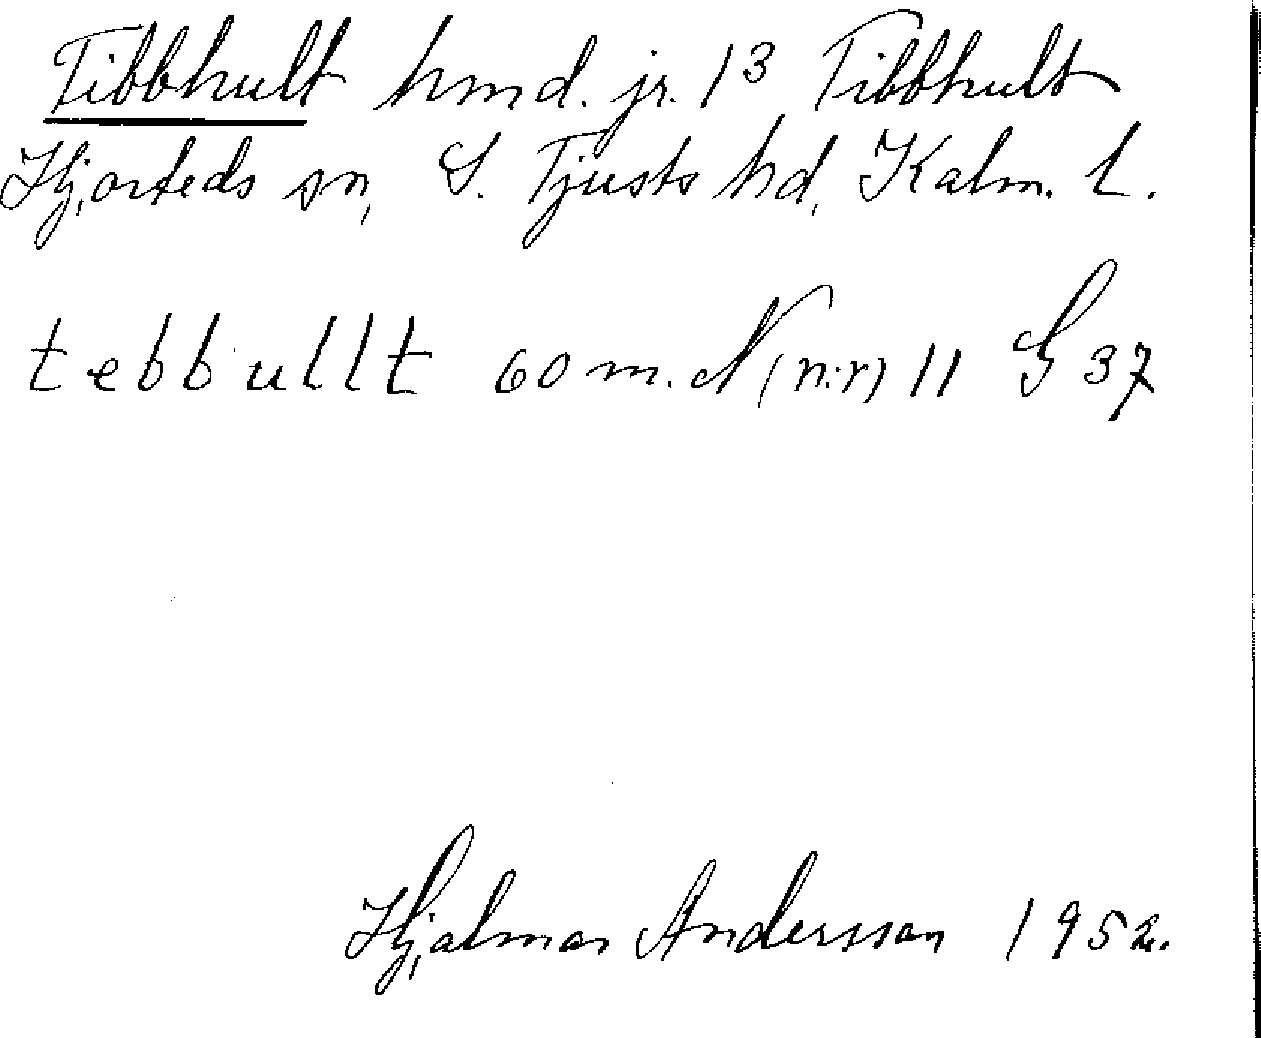 Tibbhult hmd. jr. 1³ Tibbhult
Hjorteds sn, S. Tjusts hd, Kalm. L.
tebbullt 60 m. N (n:r) 11 G 37
Hjalmar Andersson 1952.